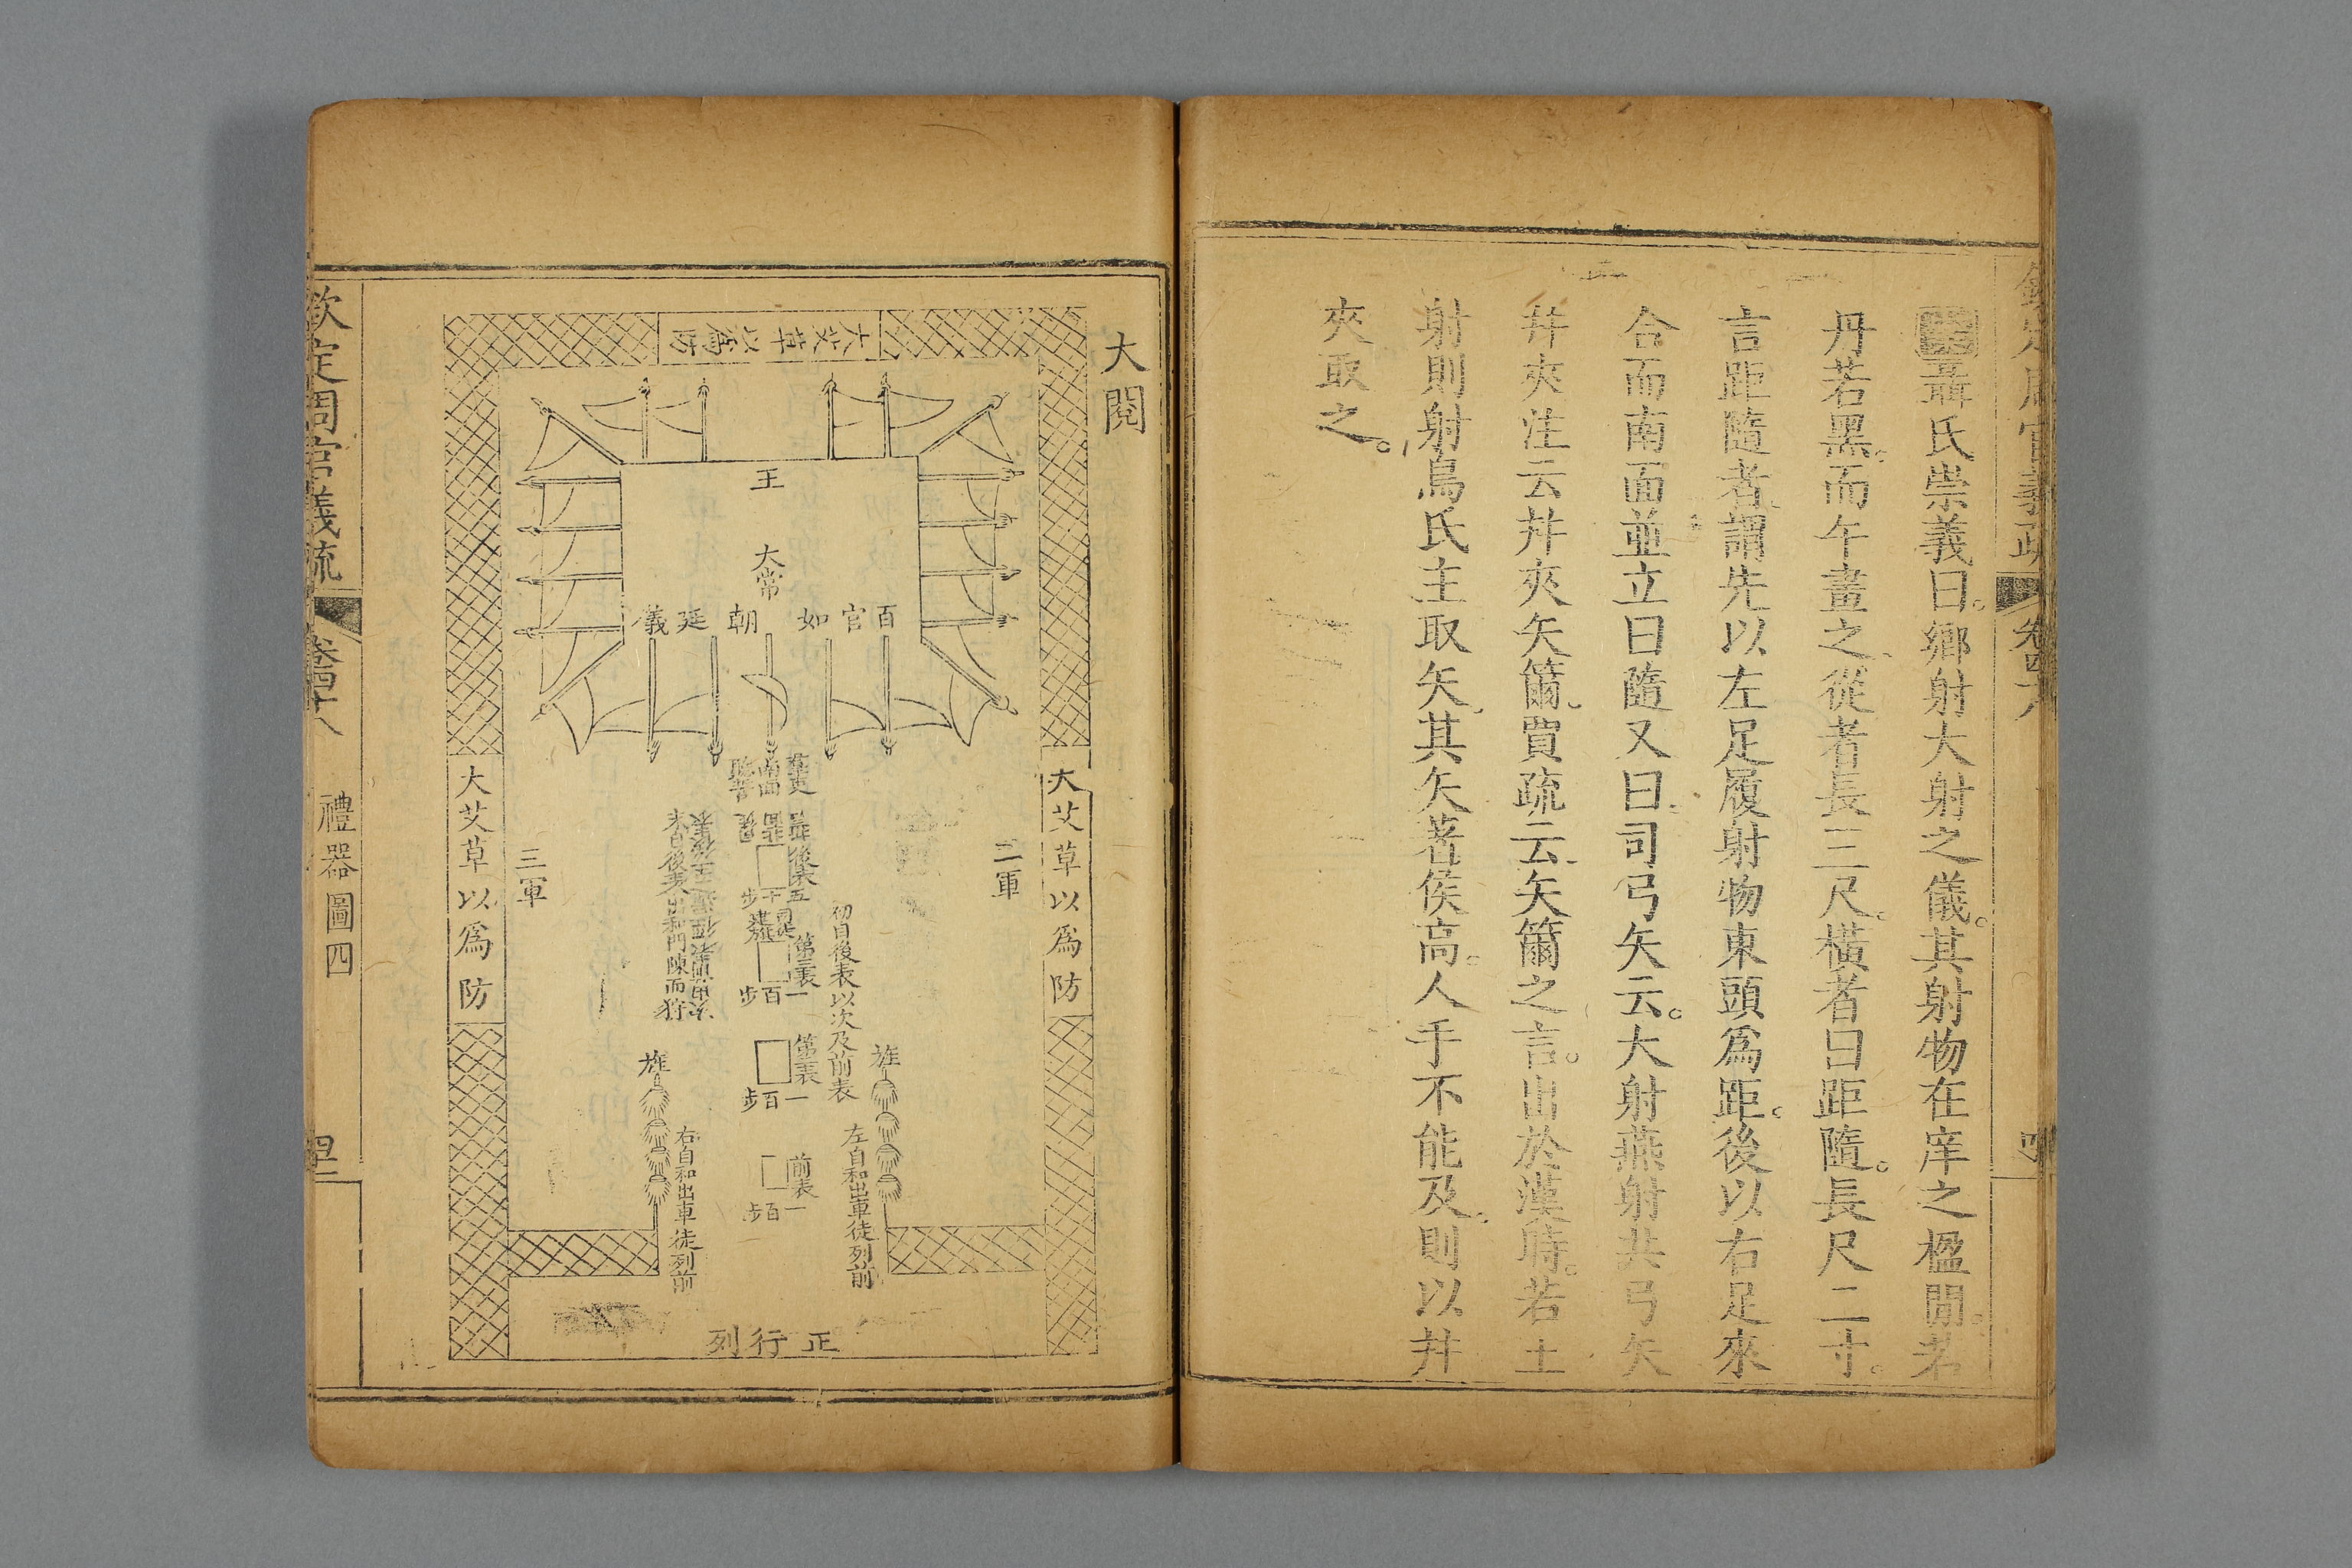 聶氏崇義曰鄉射大射之儀其射物在庠之楹閒若
丹若黑而午畫之從者長三尺橫者曰距隨長尺二寸
言距隨者謂先以左足履射物東頭爲距後以右足來
合而南面並立曰隨又曰司弓矢云大射燕射共弓矢
幷夾注云幷夾矢籋賈疏云矢籋之言出於漢時若土
射則射鳥氏主取矢其矢著侯高人手不能及則以幷
夾取之
大閱
大艾草以爲防
王
大常
百官如朝廷儀
大艾草以爲防
二軍
羣吏
聽誓
後表五
十步
第二表
一百步
第三表
一百步
前表
一百步
初自後表以次及前表
旌
左自和出車徒列前
旌
右自和出車徒列前
三軍
大艾草以爲防
正行列
欽定周官義疏
卷四十八
禮器圖四